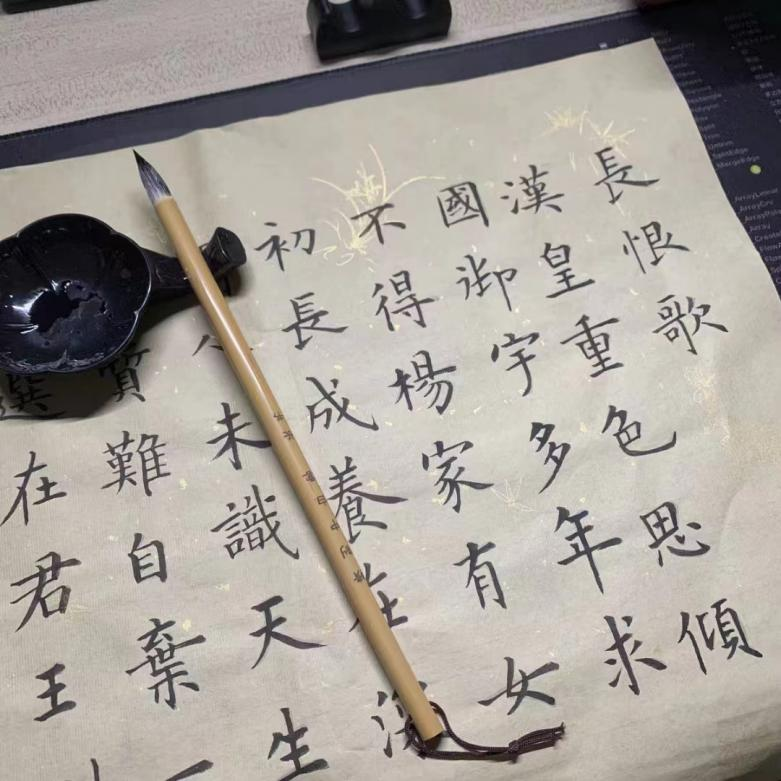 長恨歌
漢皇重色思傾
國御宇多年求
不得楊家有女
初長成養在深
未識天生
質難自棄一
選在君王
Untrim
SplitEdge
MergeEdge